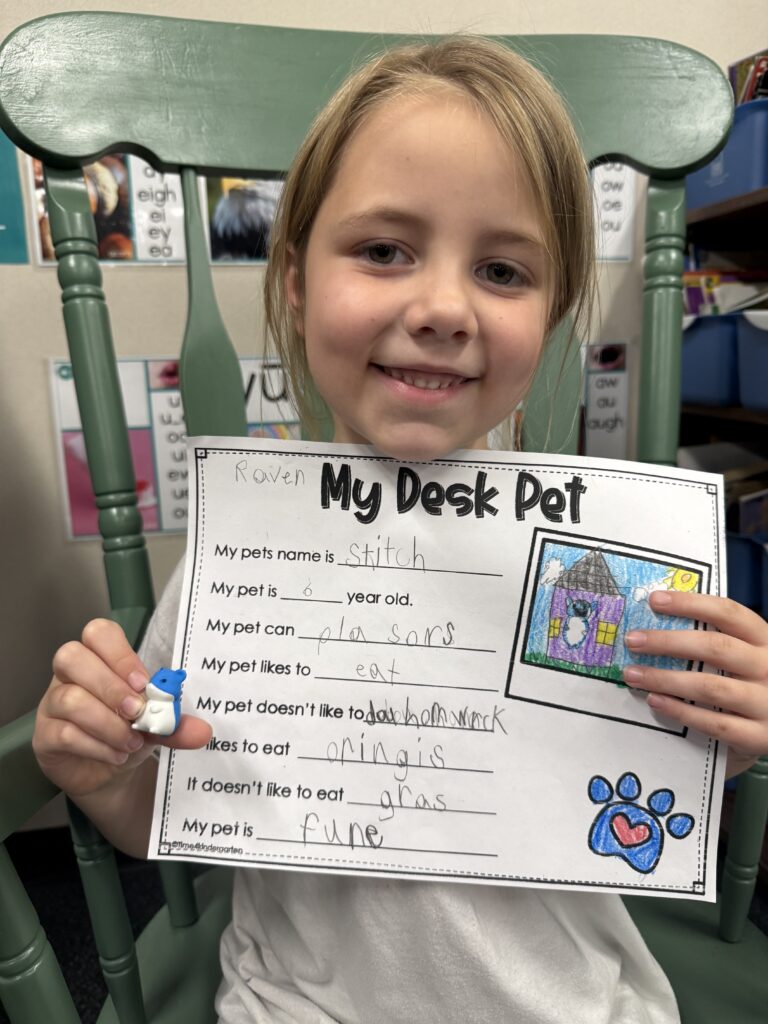 eigh
ei
ey
ea
ow
oe
ou
aw
au
augh
Raven
My Desk Pet
My pets name is stitch
My pet is 6 year old.
My pet can pla sors
My pet likes to eat
My pet doesn't like to
likes to eat oringis
It doesn't like to eat gras
My pet is fune
©Time4kindergarten